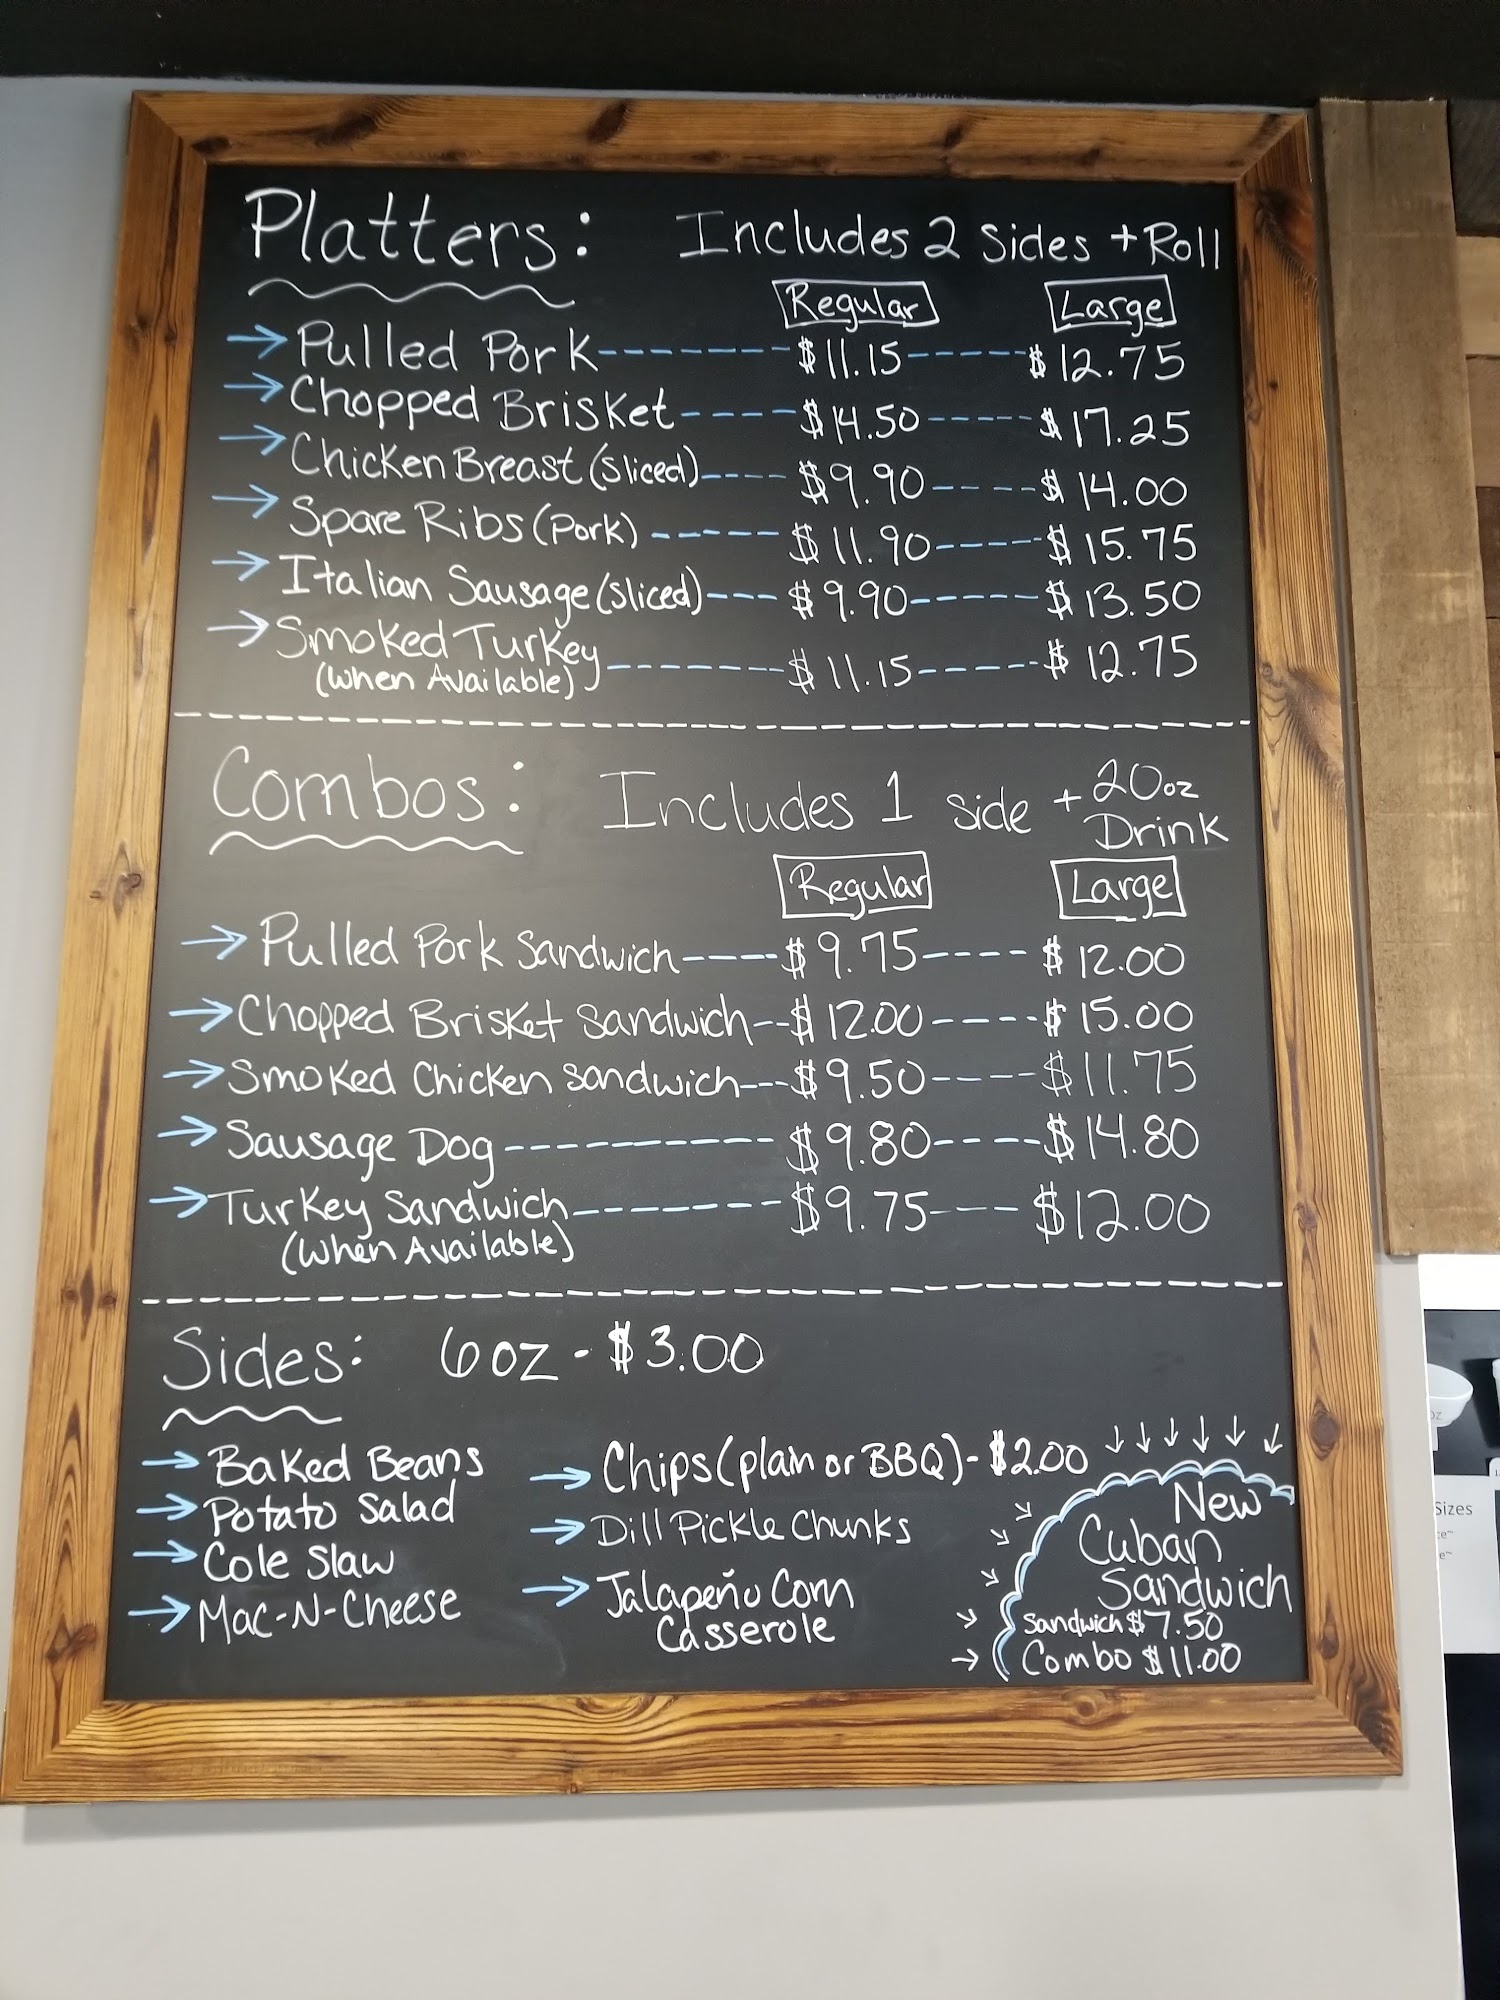 Platters: Includes 2 Sides + Roll
Regular Large
Pulled Pork $11.15 $12.75
Chopped Brisket $14.50 $17.25
Chicken Breast (Sliced) $9.90 $14.00
Spare Ribs (Pork) $11.90 $15.75
Italian Sausage (Sliced) $9.90 $13.50
Smoked Turkey $11.15 $12.75
(When Available)
Combos: Includes 1 side + 20oz Drink
Regular Large
Pulled Pork Sandwich $9.75 $12.00
Chopped Brisket Sandwich $12.00 $15.00
Smoked Chicken Sandwich $9.50 $11.75
Sausage Dog $9.80 $14.80
Turkey Sandwich $9.75 $12.00
(When Available)
Sides: 6oz - $3.00
Baked Beans
Potato Salad
Cole Slaw
Mac-N-Cheese
Chips (plain or BBQ) - $2.00
Dill Pickle Chunks
Jalapeño Corn
Casserole
New
Cuban
Sandwich
Sandwich $7.50
Combo $11.00
Sizes